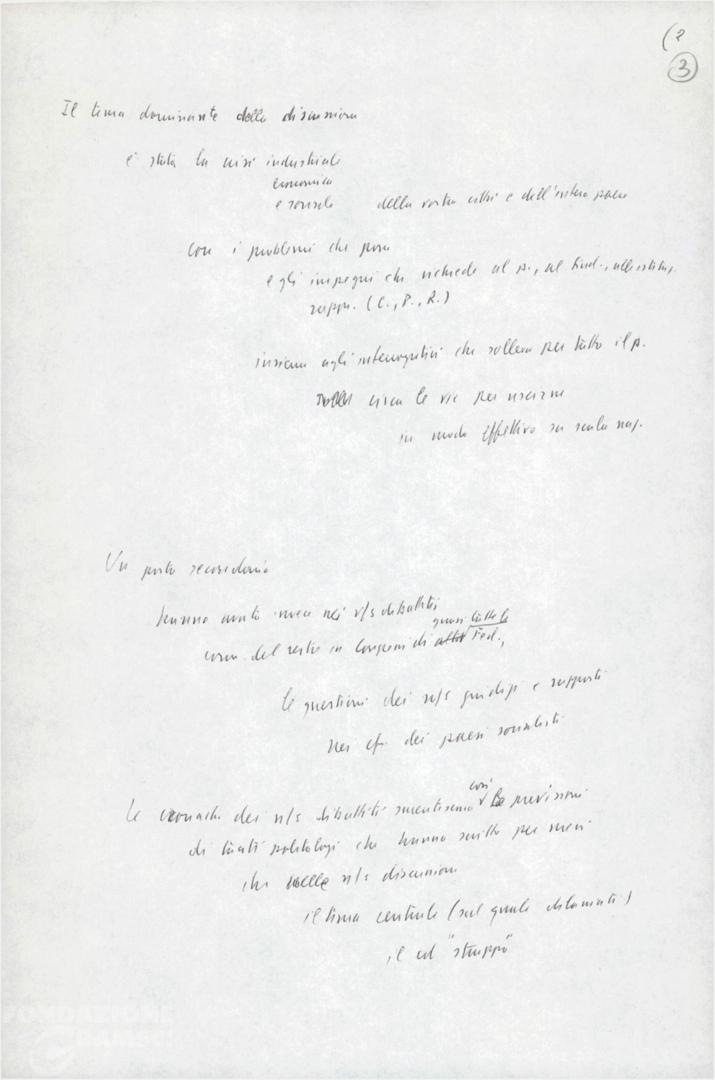 (2
3
Il tema dominante della discussione
è stata la crisi industriale
economica
e sociale della vostra città e dell'intero paese
con i problemi che pone
e gli impegni che richiede al p., al sind., alle istituz.
rappr. (C., P., R.)
insieme agli interrogativi che solleva per tutto il p.
circa le vie per uscirne
in modo effettivo su scala naz.
Un posto secondario
hanno avuto invece nei n/s dibattiti
quasi tutte le
come del resto in Congressi di altre Fed.,
le questioni dei n/s giudizi e rapporti
nei cfr. dei paesi socialisti
così
Le cronache dei n/s dibattiti smentiscono le previsioni
di tanti politologi che hanno scritto per mesi
che nelle n/s discussioni
il tema centrale (sul quale dilaniati)
il cd "strappo"
FONDAZIONE
GRAMSCI